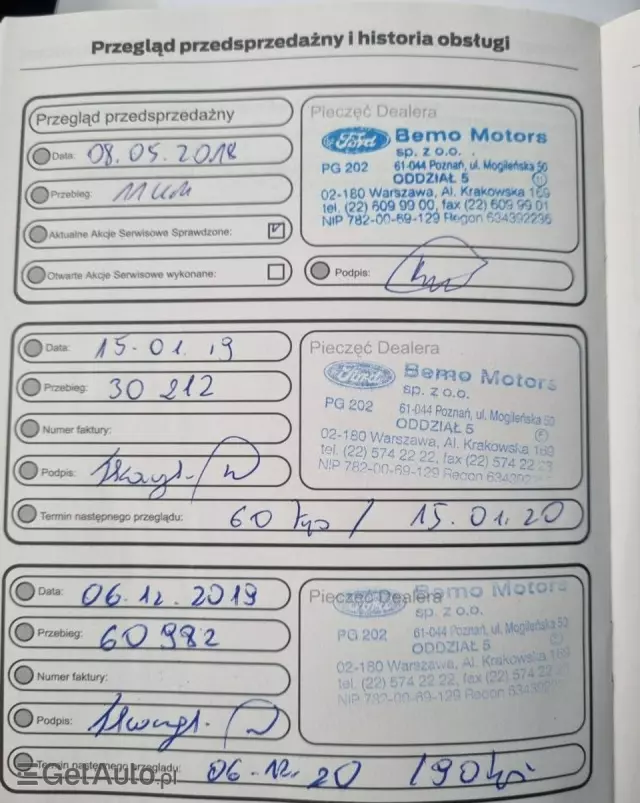 Przegląd przedsprzedażny i historia obsługi
Przegląd przedsprzedażny
Data: 08.05.2018
Przebieg: 11 km
Aktualne Akcje Serwisowe Sprawdzone:
Otwarte Akcje Serwisowe wykonane:
Pieczęć Dealera
Ford Bemo Motors
sp. z o.o.
PG 202 61-044 Poznań, ul. Mogileńska 50
ODDZIAŁ 5
02-180 Warszawa, Al. Krakowska 169
tel. (22) 609 99 00, fax (22) 609 99 01
NIP 782-00-69-129 Regon 634392235
Podpis:
Data: 15-01.19
Przebieg: 30 212
Numer faktury:
Podpis:
Pieczęć Dealera
Ford Bemo Motors
sp. z o.o.
PG 202 61-044 Poznań, ul. Mogileńska 50
ODDZIAŁ 5
02-180 Warszawa, Al. Krakowska 169
tel. (22) 574 22 22, fax (22) 574 22
NIP 782-00-69-129 Regon
Termin następnego przeglądu: 60 tys / 15.01.20
Data: 06.12.2019
Przebieg: 60 982
Numer faktury:
Podpis:
Pieczęć Dealera
Bemo Motors
sp. z o.o.
PG 202 61-044 Poznań, ul. Mogileńska 50
ODDZIAŁ 5
02-180 Warszawa, Al. Krakowska 169
tel. (22) 574 22 22, fax (22) 574 22
NIP 782-00-69-129 Regon
Termin następnego przeglądu: 06.12.20 / 90
GetAuto.pl